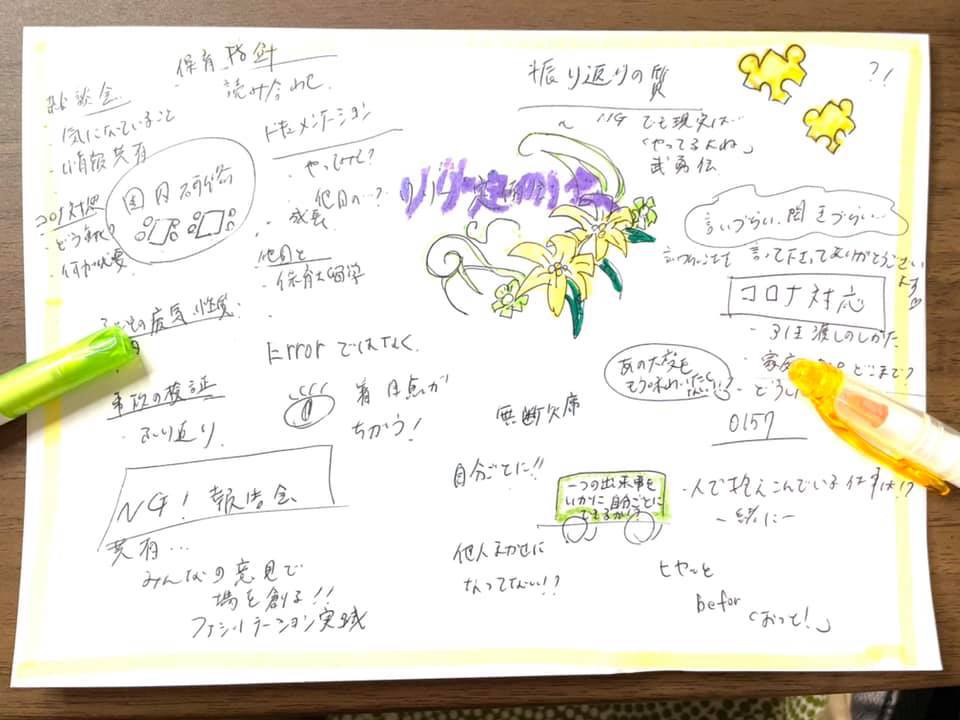 保育指針
読み合わせ
雑談会
・気になっていること
・情報共有
園内研修
コロナ対応
・どう
・何が必要
ドキュメンテーション
・やってみて?
・他園の…?
成長
他園と
・保育士留学
子どもの病気、性質
事故の検証
・ふり返り
Errorではなく
着目点が
ちがう!
NG!報告会
共有…
みんなの意見で
場を創る!!
ファシリテーション実践
振り返りの質
?!
〜 NG でも現実は…
「やってるよね」
武勇伝
リーダー
言いづらい、聞きづらい…
言って下さってありがとうございます
コロナ対応
・引き渡しのしかた
・家庭 どこまで?
・どうした
0157
あの
無断欠席
自分ごとに!!
一つの出来事を
いかに自分ごとに
できるか!?
他人まかせに
なってない!?
・一人で抱えこんでいる仕事は!?
ー緒にー
ヒヤッと
befor
「おっと!」